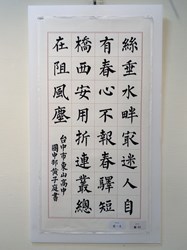 絲垂水畔㝡迷人自
有春心不報春驛短
橋西安用折連叢總
在阻風塵
台中市東山高中
國中部黃子庭書